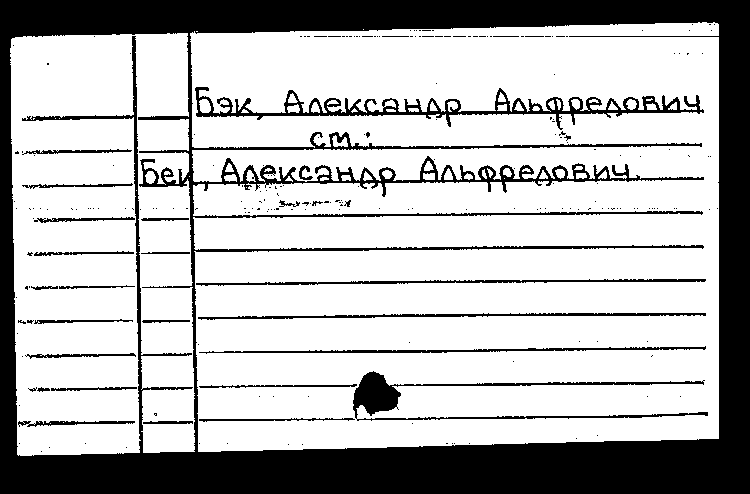 Бэк, Александр Альфредович
см.:
Бек, Александр Альфредович.